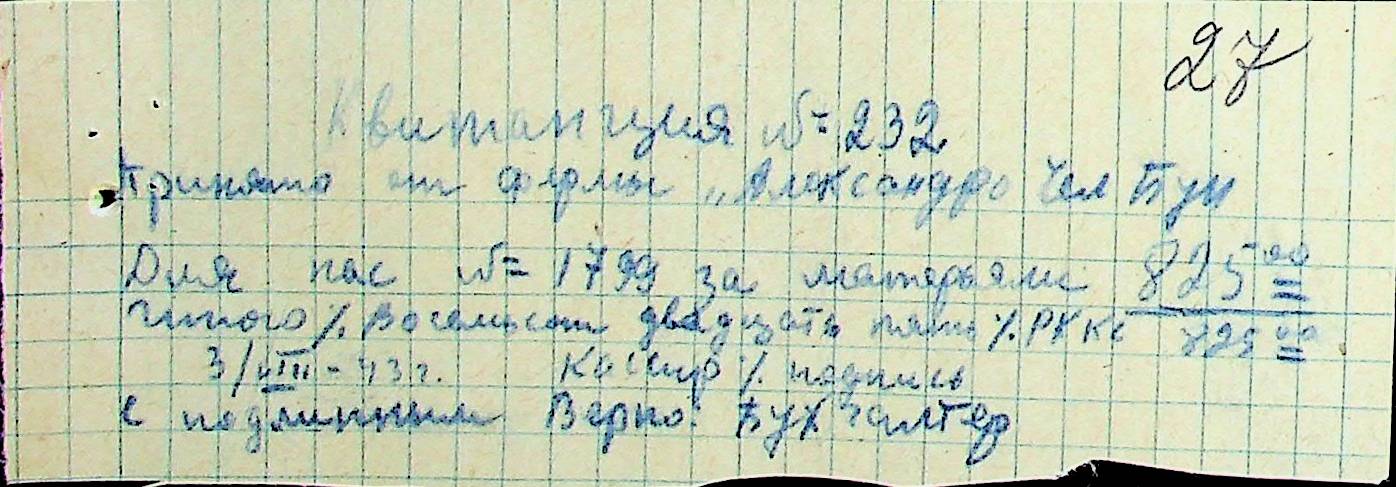 27
Квитанция №= 232
Принято от фермы „Александро Чел Бун
Для нас №= 1799 за матерьялы 825 00
Читого /. Восемьсот двадцать пять /. РККС 825 00
3/VIII - 43 г. Кассир /. подпись
с подлинным Верно: Бухгалтер